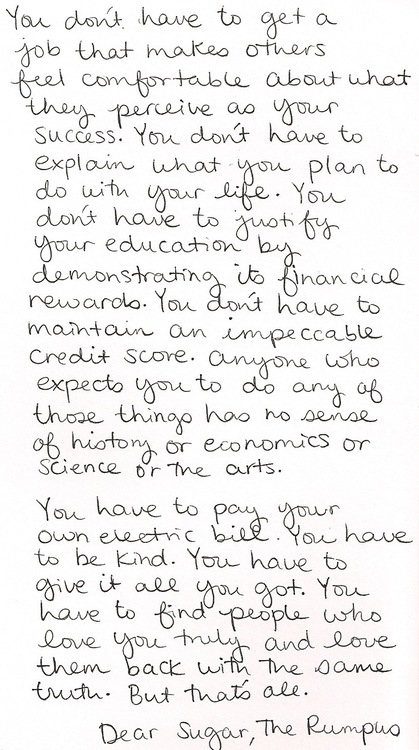 You don't have to get a
job that makes others
feel comfortable about what
they perceive as your
success. You don't have to
explain what you plan to
do with your life. You
don't have to justify
your education by
demonstrating its financial
rewards. You don't have to
maintain an impeccable
credit score. Anyone who
expects you to do any of
those things has no sense
of history or economics or
science or the arts.

You have to pay your
own electric bill. You have
to be kind. You have to
give it all you got. You
have to find people who
love you truly and love
them back with the same
truth. But that's all.
Dear Sugar, The Rumpus